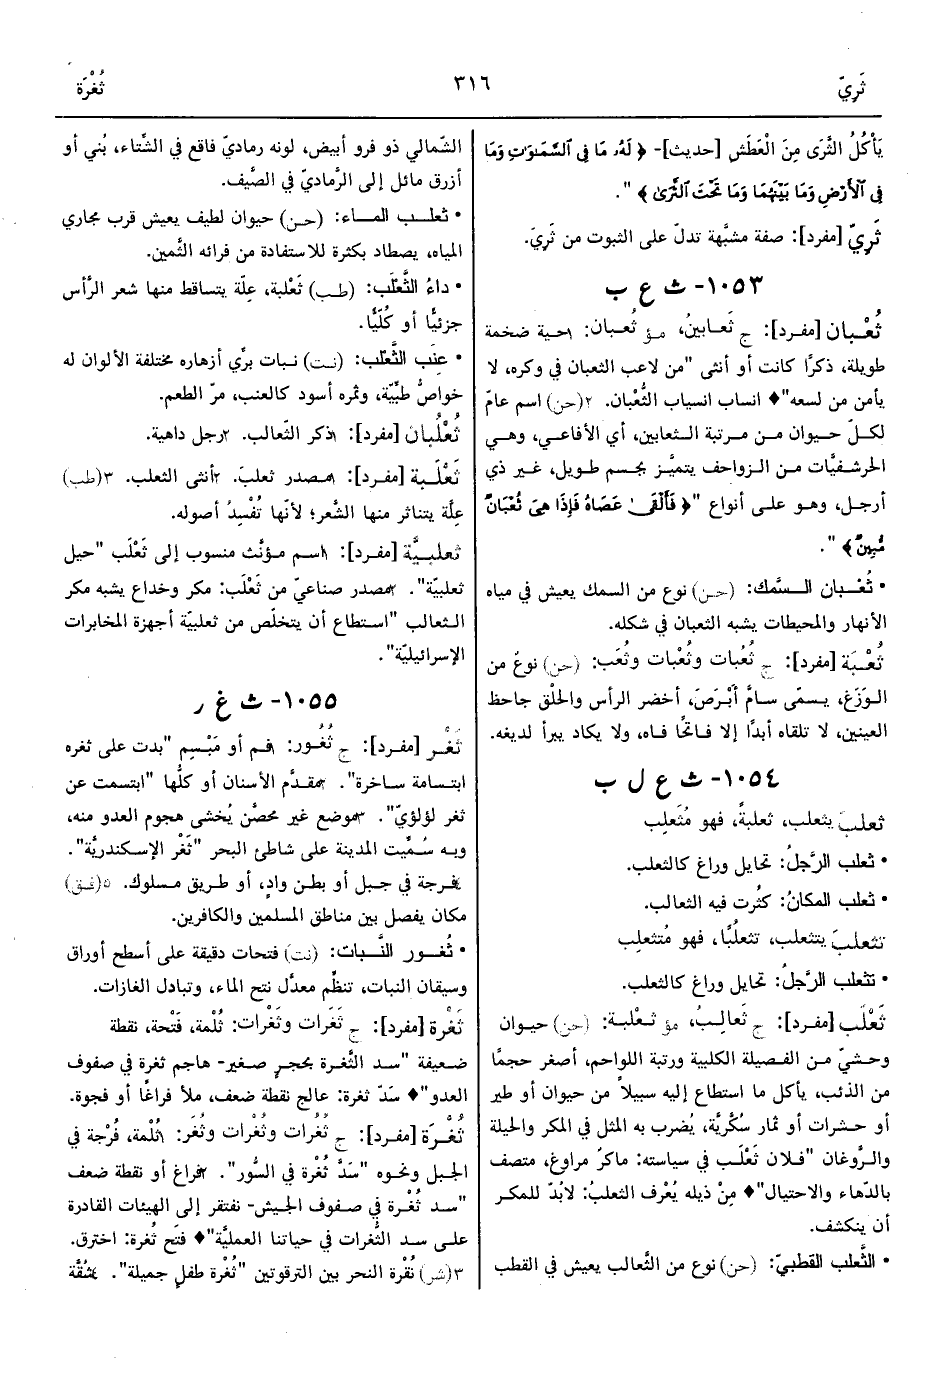 ثَرِيّ
٣١٦
ثُغْرَة
يَأْكُلُ الثَّرَى مِنَ الْعَطَشِ [حديث]- ﴿ لَهُۥ مَا فِى ٱلسَّمَٰوَٰتِ وَمَا
فِى ٱلْأَرْضِ وَمَا بَيْنَهُمَا وَمَا تَحْتَ ٱلثَّرَىٰ ﴾ ".
ثَرِيّ [مفرد]: صفة مشبَّهة تدلّ على الثبوت من ثَرِيَ.
١٠٥٣- ث ع ب
ثُعْبان [مفرد]: ج ثَعابينُ، مؤ ثُعبان: ١حية ضخمة
طويلة، ذكرًا كانت أو أنثى "من لاعب الثعبان في وكره، لا
يأمن من لسعه"♦ انساب انسياب الثُّعْبان. ٢(حن) اسم عامّ
لكلّ حيوان من مرتبة الثعابين، أي الأفاعي، وهي
الحرشفيَّات من الزواحف يتميَّز بجسم طويل، غير ذي
أرجل، وهو على أنواع "﴿ فَأَلْقَىٰ عَصَاهُ فَإِذَا هِىَ ثُعْبَانٌ
مُّبِينٌ ﴾ ".
• ثُعْبان السَّمك: (حن) نوع من السمك يعيش في مياه
الأنهار والمحيطات يشبه الثعبان في شكله.
ثُعْبَة [مفرد]: ج ثُعُبات وثُعْبات وثُعَب: (حن) نوعٌ من
الوَزَغ، يسمّى سامَّ أَبْرَصَ، أخضر الرأس والحلْق جاحظ
العينين، لا تلقاه أبدًا إلا فاتحًا فاه، ولا يكاد يبرأ لديغه.
١٠٥٤- ث ع ل ب
ثعلبَ يثعلب، ثعلبةً، فهو مُثَعلِب
• ثعلب الرَّجلُ: تحايل وراغ كالثعلب.
• ثعلب المكانُ: كثُرت فيه الثعالب.
تثعلبَ يتثعلب، تثعلُبًا، فهو مُتثعلِب
• تثعلب الرَّجلُ: تحايل وراغ كالثعلب.
ثَعْلَب [مفرد]: ج ثَعالِبُ، مؤ ثعْلبة: (حن) حيوان
وحشيّ من الفصيلة الكلبية ورتبة اللواحم، أصغر حجمًا
من الذئب، يأكل ما استطاع إليه سبيلاً من حيوان أو طير
أو حشرات أو ثمار سُكَّريَّة، يُضرب به المثل في المكر والحيلة
والرَّوغان "فلان ثَعْلَب في سياسته: ماكرٌ مراوغ، متصف
بالدّهاء والاحتيال"♦ مِنْ ذيله يُعْرف الثعلبُ: لابُدّ للمكر
أن ينكشف.
• الثَّعلب القطبيّ: (حن) نوع من الثَّعالب يعيش في القطب
الشّمالي ذو فرو أبيض، لونه رماديّ فاقع في الشّتاء، بُني أو
أزرق مائل إلى الرَّماديّ في الصَّيف.
• ثعلب الماء: (حن) حيوان لطيف يعيش قرب مجاري
المياه، يصطاد بكثرة للاستفادة من فرائه الثَّمين.
• داءُ الثَّعْلَب: (طب) ثَعْلبة، عِلّة يتساقط منها شعر الرَّأس
جزئيًّا أو كُلّيًّا.
• عِنَب الثَّعْلب: (نت) نبات برِّي أزهاره مختلفة الألوان له
خواصُّ طبِّيَّة، وثمره أسود كالعنب، مرّ الطعم.
ثُعْلُبان [مفرد]: ١ذكر الثّعالب. ٢رجل داهية.
ثَعْلَبة [مفرد]: ١مصدر ثعلبَ. ٢أنثى الثعلب. ٣(طب)
عِلَّة يتناثر منها الشَّعر؛ لأنّها تُفْسِدُ أصوله.
ثعلبيَّة [مفرد]: ١اسم مؤنَّث منسوب إلى ثَعْلَب "حيل
ثعلبيّة". ٢مصدر صناعيّ من ثَعْلَب: مكر وخداع يشبه مكر
الثعالب "استطاع أن يتخلّص من ثعلبيّة أجهزة المخابرات
الإسرائيليّة".
١٠٥٥- ث غ ر
ثَغْر [مفرد]: ج ثُغُور: ١فم أو مَبْسِم "بدت على ثغره
ابتسامة ساخرة". ٢مقدَّم الأسنان أو كلُّها "ابتسمت عن
ثغر لؤلؤيّ". ٣موضع غير محصَّن يُخشى هجوم العدو منه،
وبه سُمِّيت المدينة على شاطئ البحر "ثَغْر الإسكندريَّة".
٤فرجة في جبل أو بطن وادٍ، أو طريق مسلوك. ٥(فق)
مكان يفصل بين مناطق المسلمين والكافرين.
• ثُغور النَّبات: (نت) فتحات دقيقة على أسطح أوراق
وسيقان النبات، تنظِّم معدّل نتح الماء، وتبادل الغازات.
ثَغْرة [مفرد]: ج ثَغَرات وثَغْرات: ثُلْمة، فَتْحة، نقطة
ضعيفة "سد الثَّغرة بحجرٍ صغير- هاجم ثغرة في صفوف
العدو"♦ سَدّ ثغرة: عالج نقطة ضعف، ملأ فراغًا أو فجوة.
ثُغْرَة [مفرد]: ج ثُغُرات وثُغْرات وثُغَر: ١ثُلمة، فُرْجة في
الجبل ونحوه "سَدَّ ثُغْرة في السُّور". ٢فراغ أو نقطة ضعف
"سد ثُغْرة في صفوف الجيش- نفتقر إلى الهيئات القادرة
على سد الثُّغرات في حياتنا العمليَّة"♦ فتح ثُغرة: اخترق.
٣(شر) نُقْرة النحر بين الترقوتين "ثُغْرة طفلٍ جميلة". ٤شُقَّة